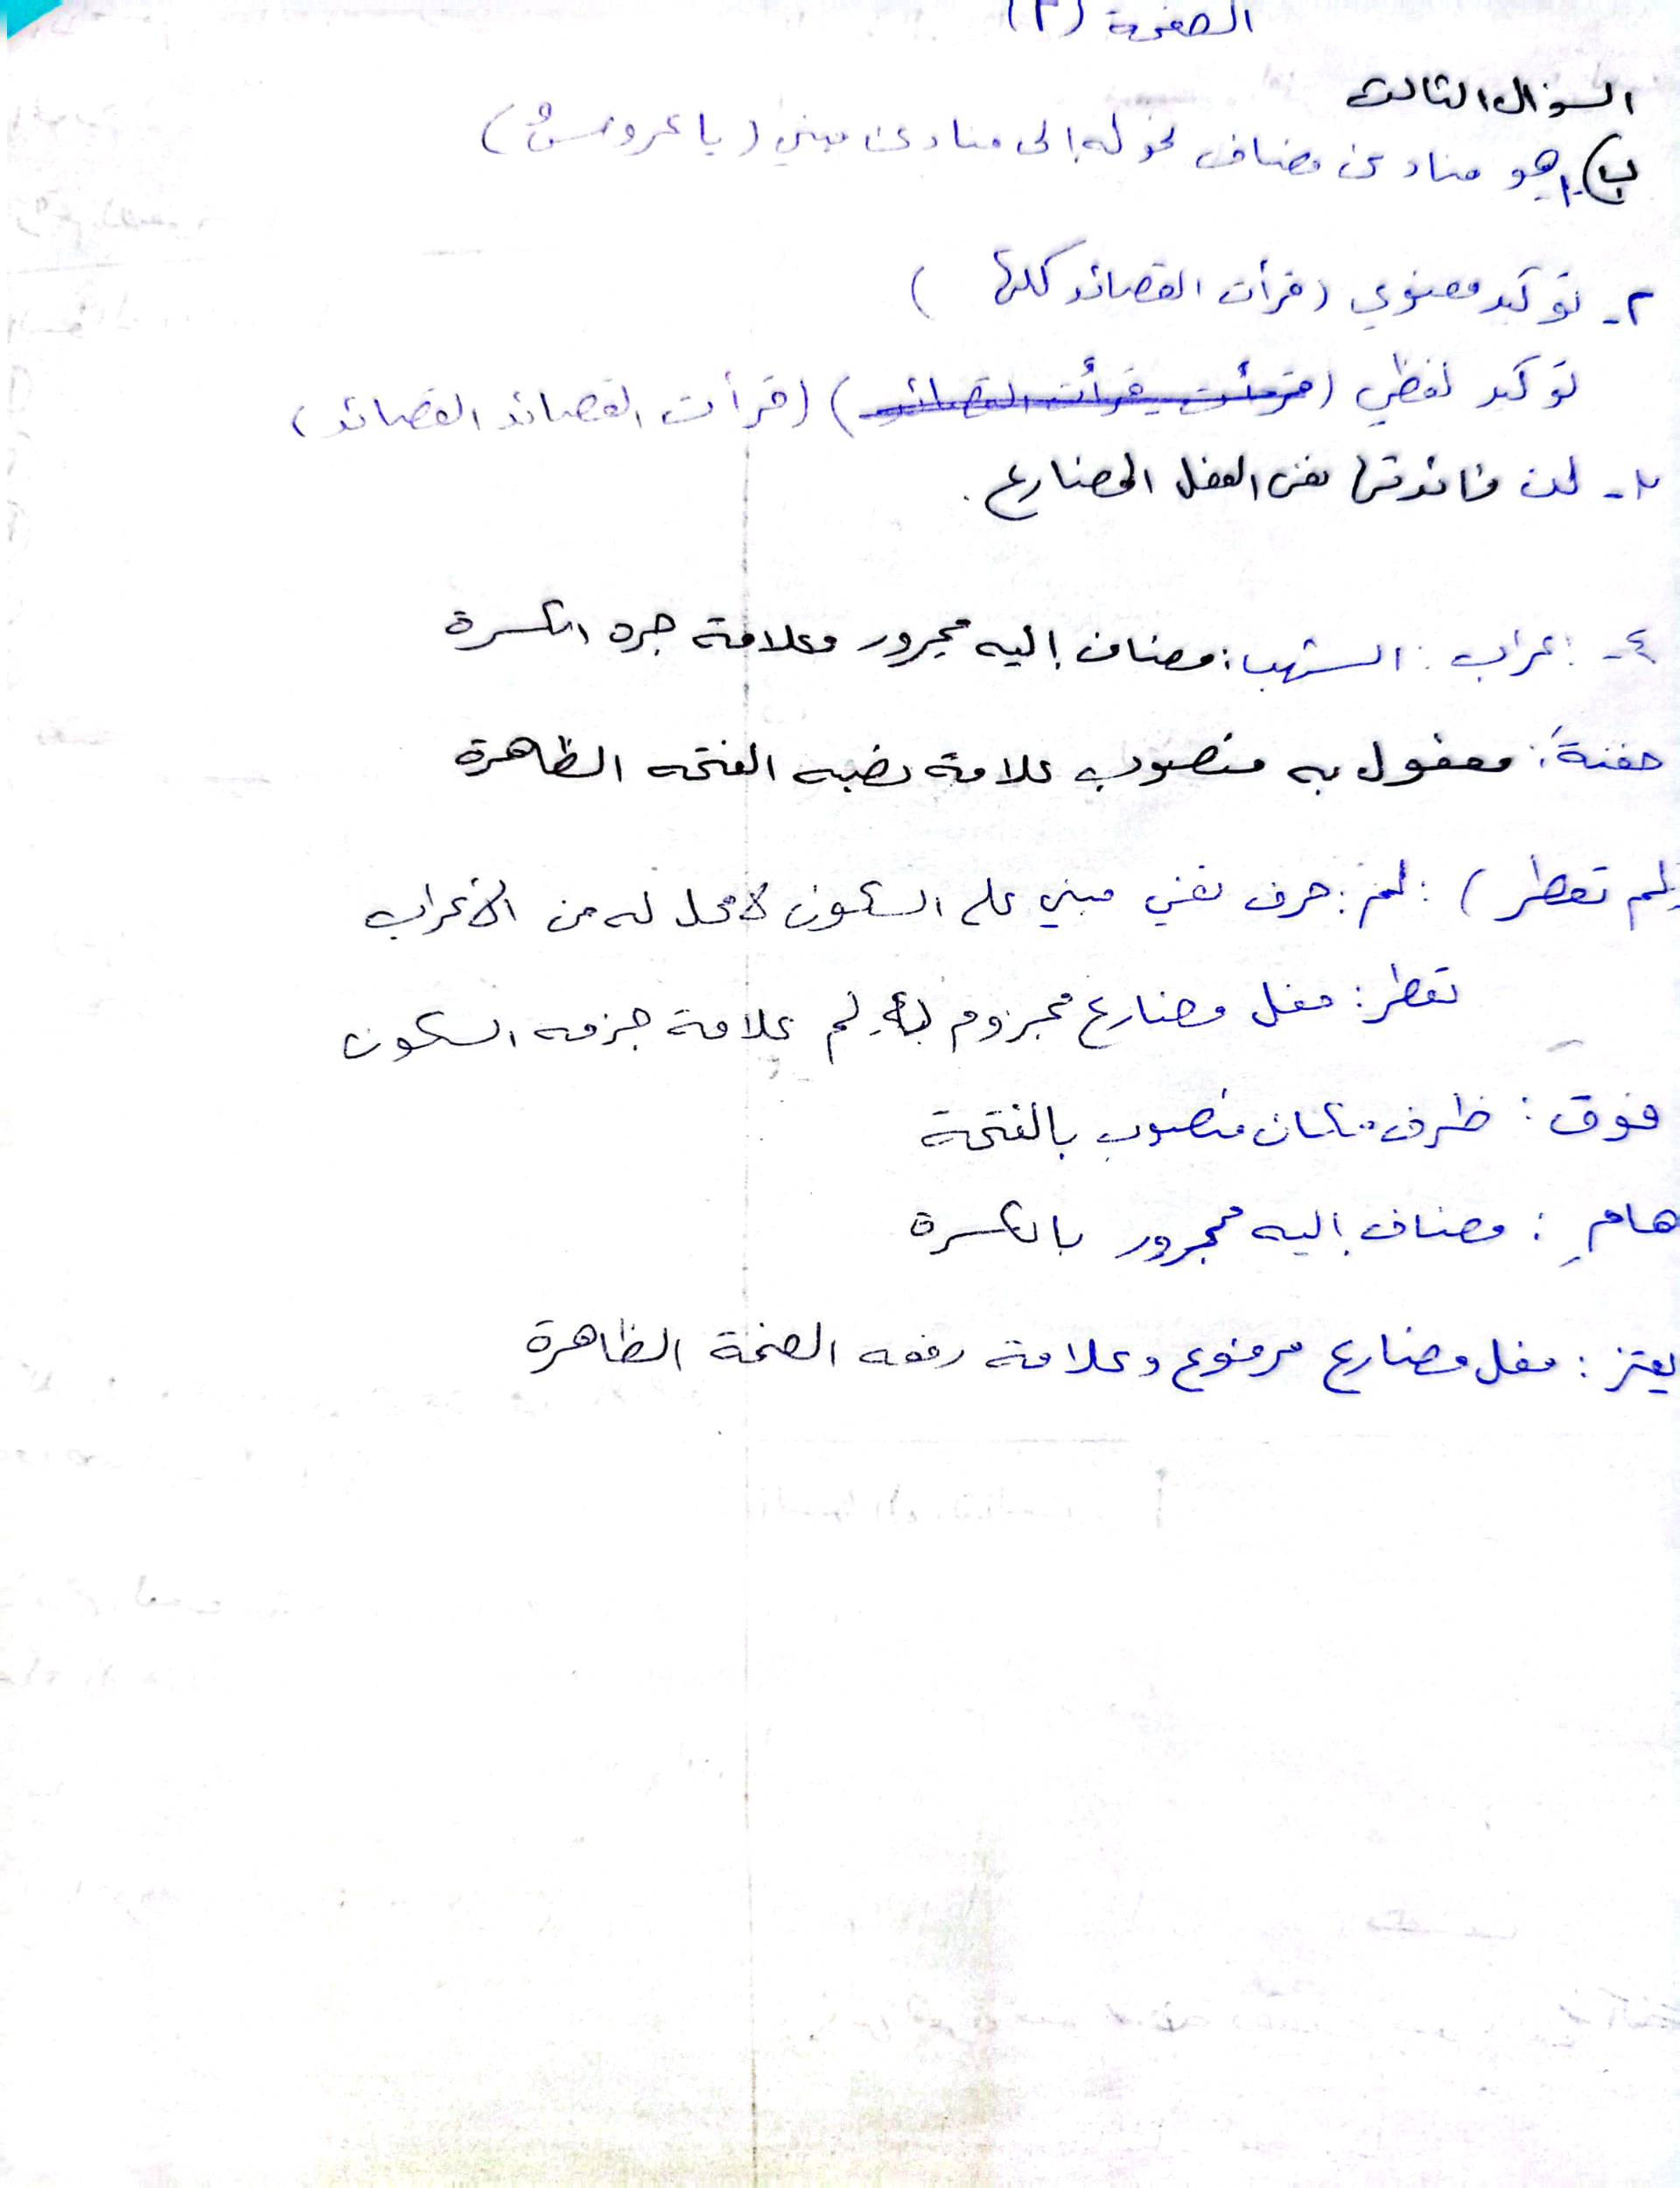 الصفحة (٣)
السؤال الثالث
ب) ١- هو منادى مضاف نحوله إلى منادى مبني (يا عروسُ)
٢- توكيد معنوي (قرأت القصائد كلها )
توكيد لفظي (قرأت القصائد القصائد)
٣- لن فائدتها نفي الفعل المضارع.
٤- إعراب: الشهب: مضاف إليه مجرور وعلامة جره الكسرة
حفنةً: مفعول به منصوب علامة نصبه الفتحه الظاهرة
لم تعطر) : لم: حرف نفي مبني على السكون لا محل له من الاعراب
تعطر: فعل مضارع مجزوم بلم علامة جزمه السكون
فوق: ظرف مكان منصوب بالفتحة
هامِ: مضاف إليه مجرور بالكسرة
يعتز: فعل مضارع مرفوع وعلامة رفعه الضمة الظاهرة